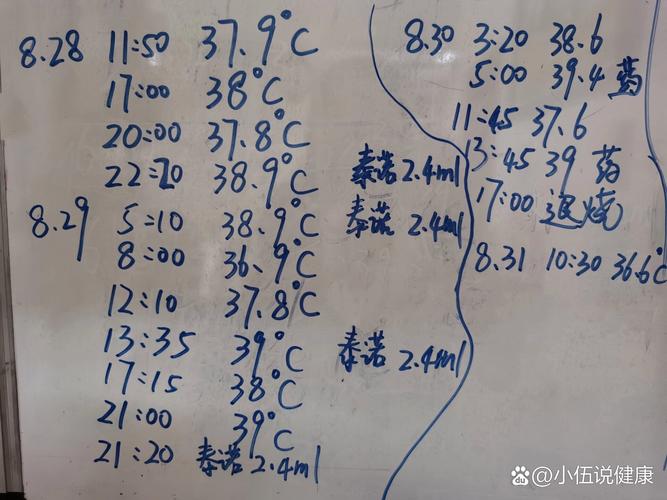 8.28 11:50 37.9°C
17:00 38°C
20:00 37.8°C
22:20 38.9°C 泰诺 2.4ml
8.29 5:10 38.9°C 泰诺 2.4ml
8:00 36.9°C
12:10 37.8°C
13:35 39°C 泰诺 2.4ml
17:15 38°C
21:00 39°C
21:20 泰诺 2.4ml
8.30 3:20 38.6
5:00 39.4 药
11:45 37.6
13:45 39 药
17:00 退烧
8.31 10:30 36.6°C
小伍说健康